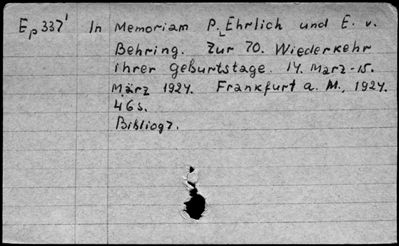 Ep 337' In Memoriam P. Ehrlich und E. v.
Behring. Zur 70. Wiederkehr
ihrer Geburtstage. 14. März-15.
März 1924. Frankfurt a. M., 1924.
46 s.
Bibliogr.